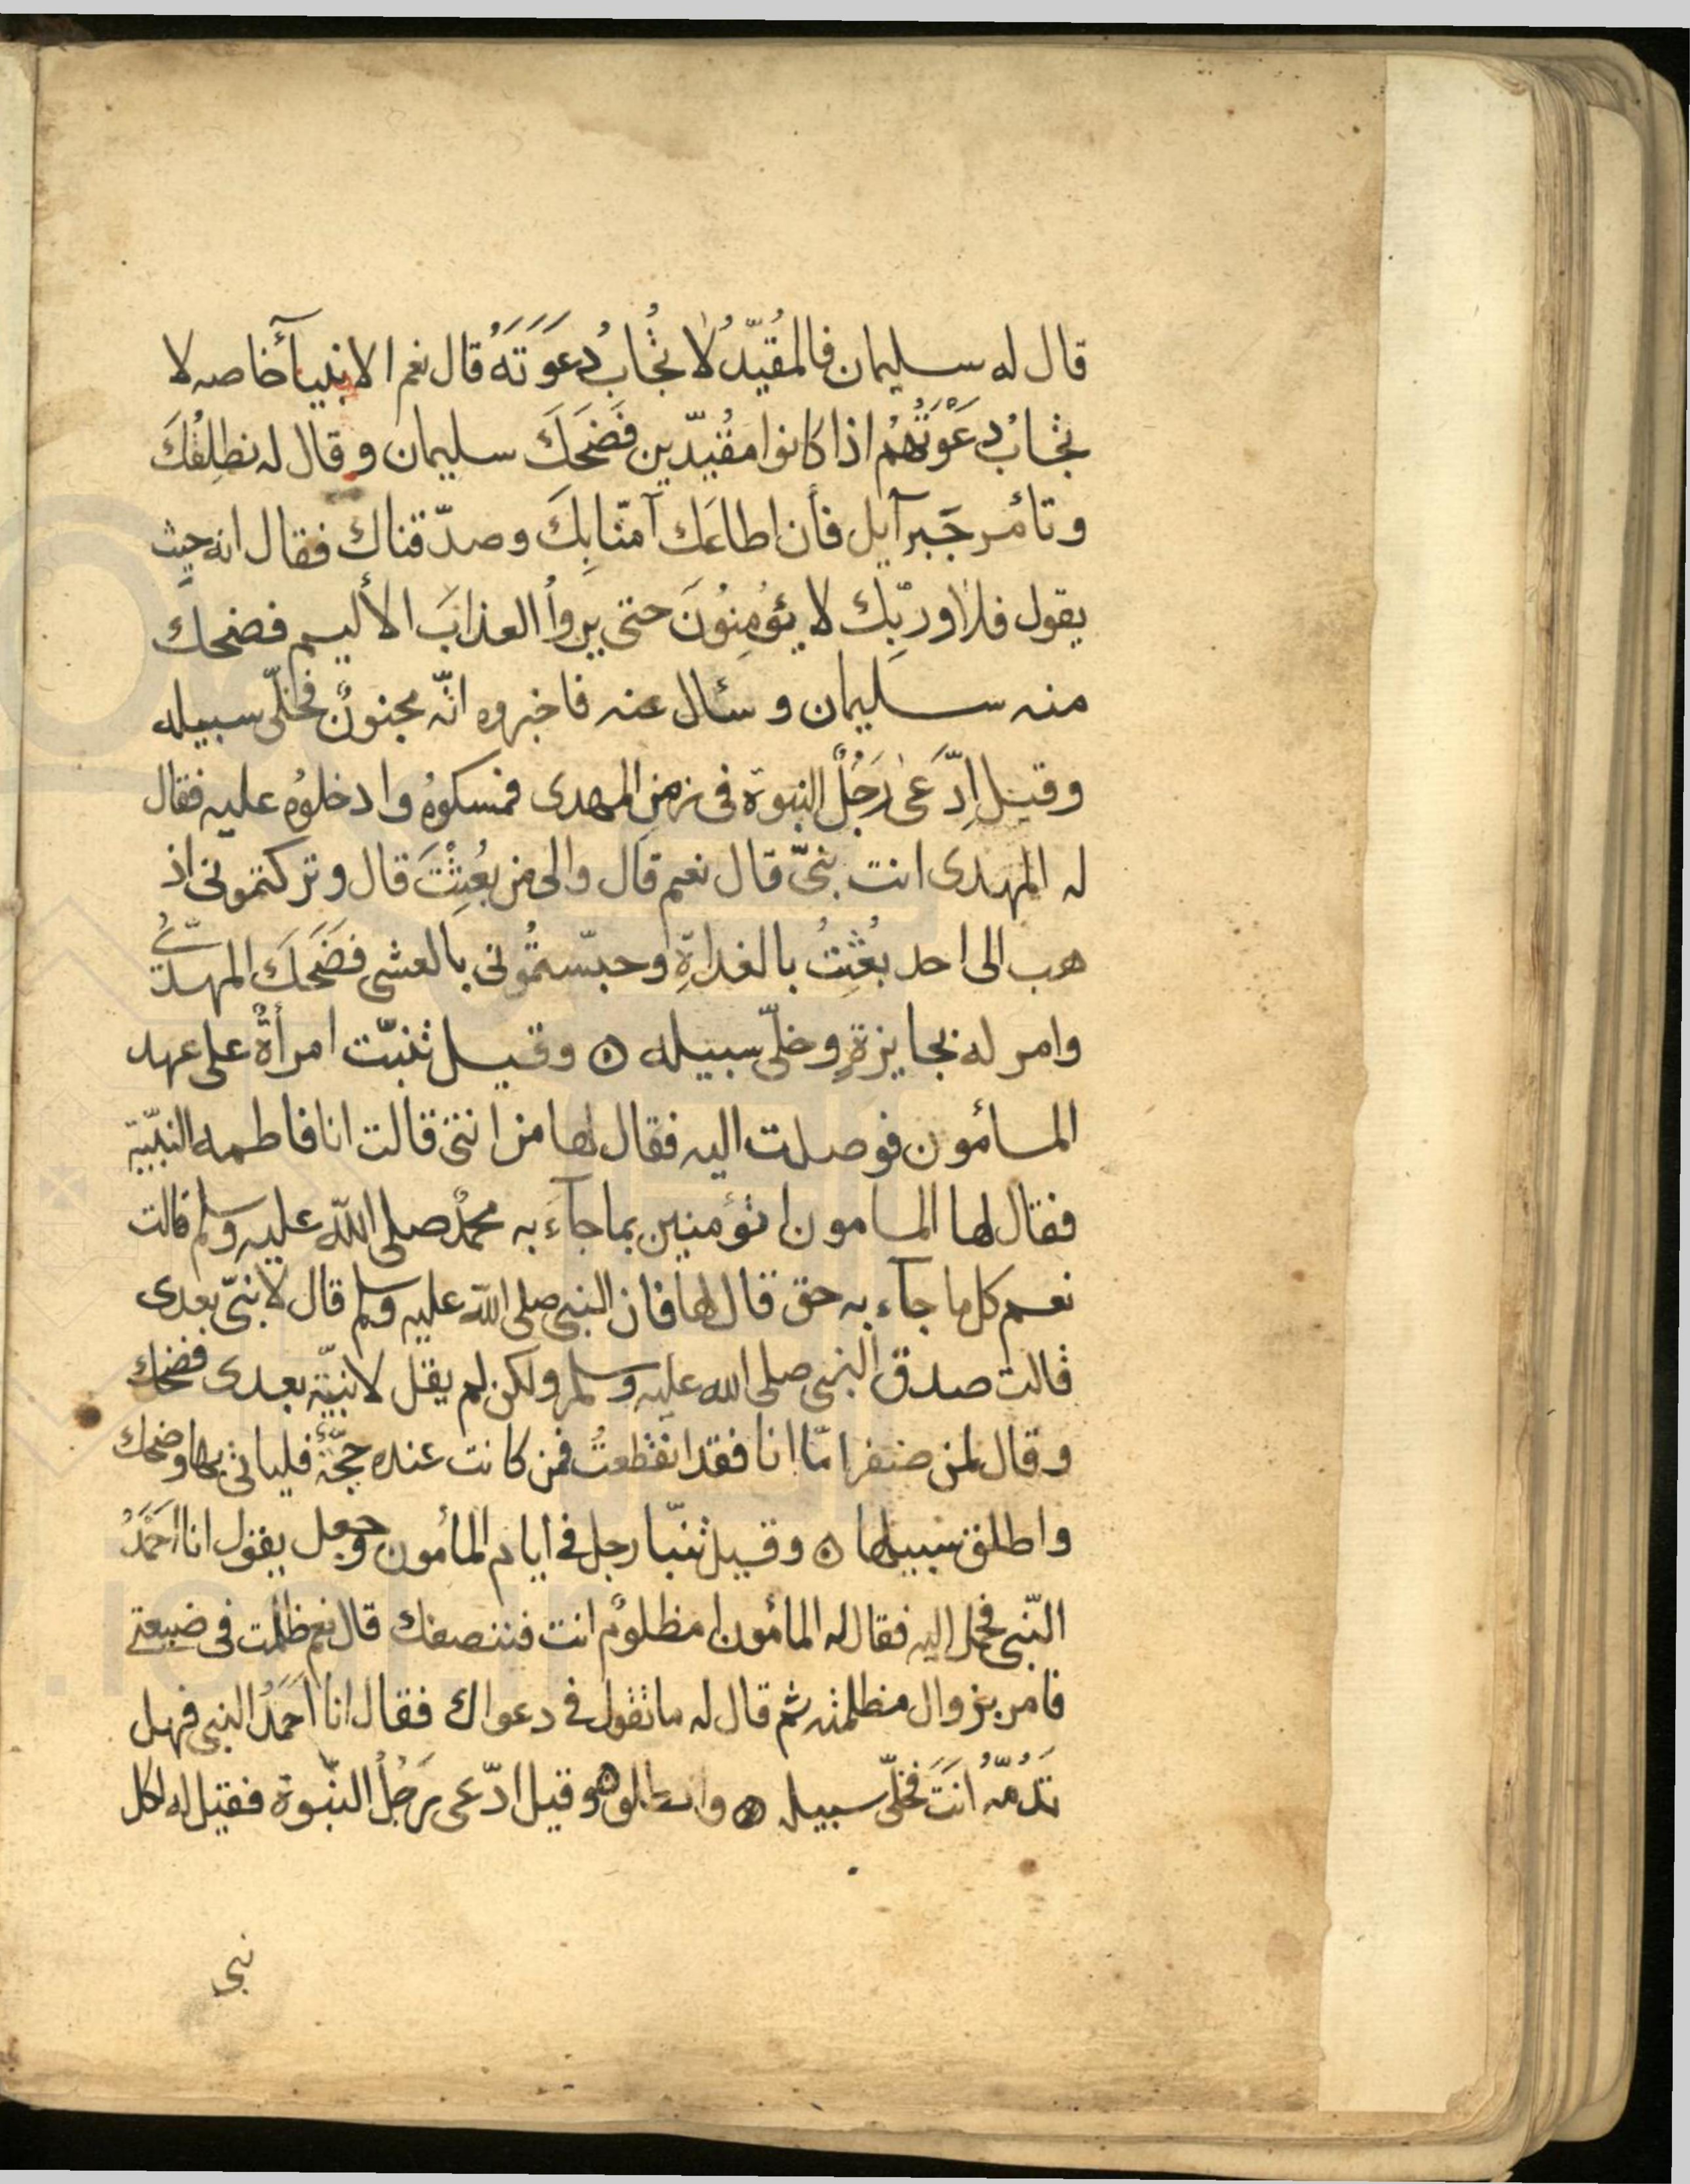 قال له سليمان فالمُقيّدُ لا تُجابُ دعَوَتَهُ قال نعم الانبيآء خاصه لا
تجابُ دعَوْتُهُم اذا كانوا مقُيّدين فَضَحَكَ سليمان و قال له نطلِقُكَ
و تأمر جَبرآيل فأن اطاعَك آمنّا بِكَ وصدّقناك فقال انه حيث
يقول فلا وربّك لا يؤمِنوُنَ حتى يروأُ العذابَ الأليم فضحك
منه سليمان و سئال عنه فاخبروه انّه مجنونٌ فخلّى سبيله
وقيل اِدّعَى رَجُلٌ النبوة فى زمن المهدى فمسكوهُ وادخلوُه عليه فقال
له المهدى انت نبىّ قال نعم قال والى من بعُثِتَ قال وتركتمونى اذ
هب الى احد بُعُثِتُ بالغداةِ وحبسّتمُونى بالعشى فَضَحَكَ المهدىُّ
وامر له بجايزةٍ وخلّى سبيله ۞ وقيل تنبّت امرأةٌ على عهد
المأمون فوصلت اليه فقال لها من انتى قالت انا فاطمه النبيّة
فقال لها المامون اتؤمنين بما جآء به محمدٌ صلى الله عليه وسلم قالت
نعم كل ما جآء به حق قال لها فان النبى صلى الله عليه وسلم قال لا نبىّ بعدى
قالت صدق النبى صلى الله عليه وسلم ولكن لم يقل لا نبيّة بعدى فضحك
وقال لمن حضر امّا انا فقد انقطعتُ فمن كانت عنده حجّةٌ فلياتى بها وضحك
واطلق سبيلها ۞ وقيل تنبّا رجل فى ايام المأمون وجعل يقول انا احَمَدُ
النّبى فحمل اليه فقال له المأمون امظلومٌ انت فننصفك قال نعم ظلمت فى ضيعتى
فامر بزوال مظلمته ثم قال له ما تقول فى دعواك فقال انا احَمَدُ النبى فهل
تَذُمّهُ انَتَ فخلّى سبيله ۞ وقيل ادّعى رَجُلٌ النبّوة فقيل له لكل
نبى